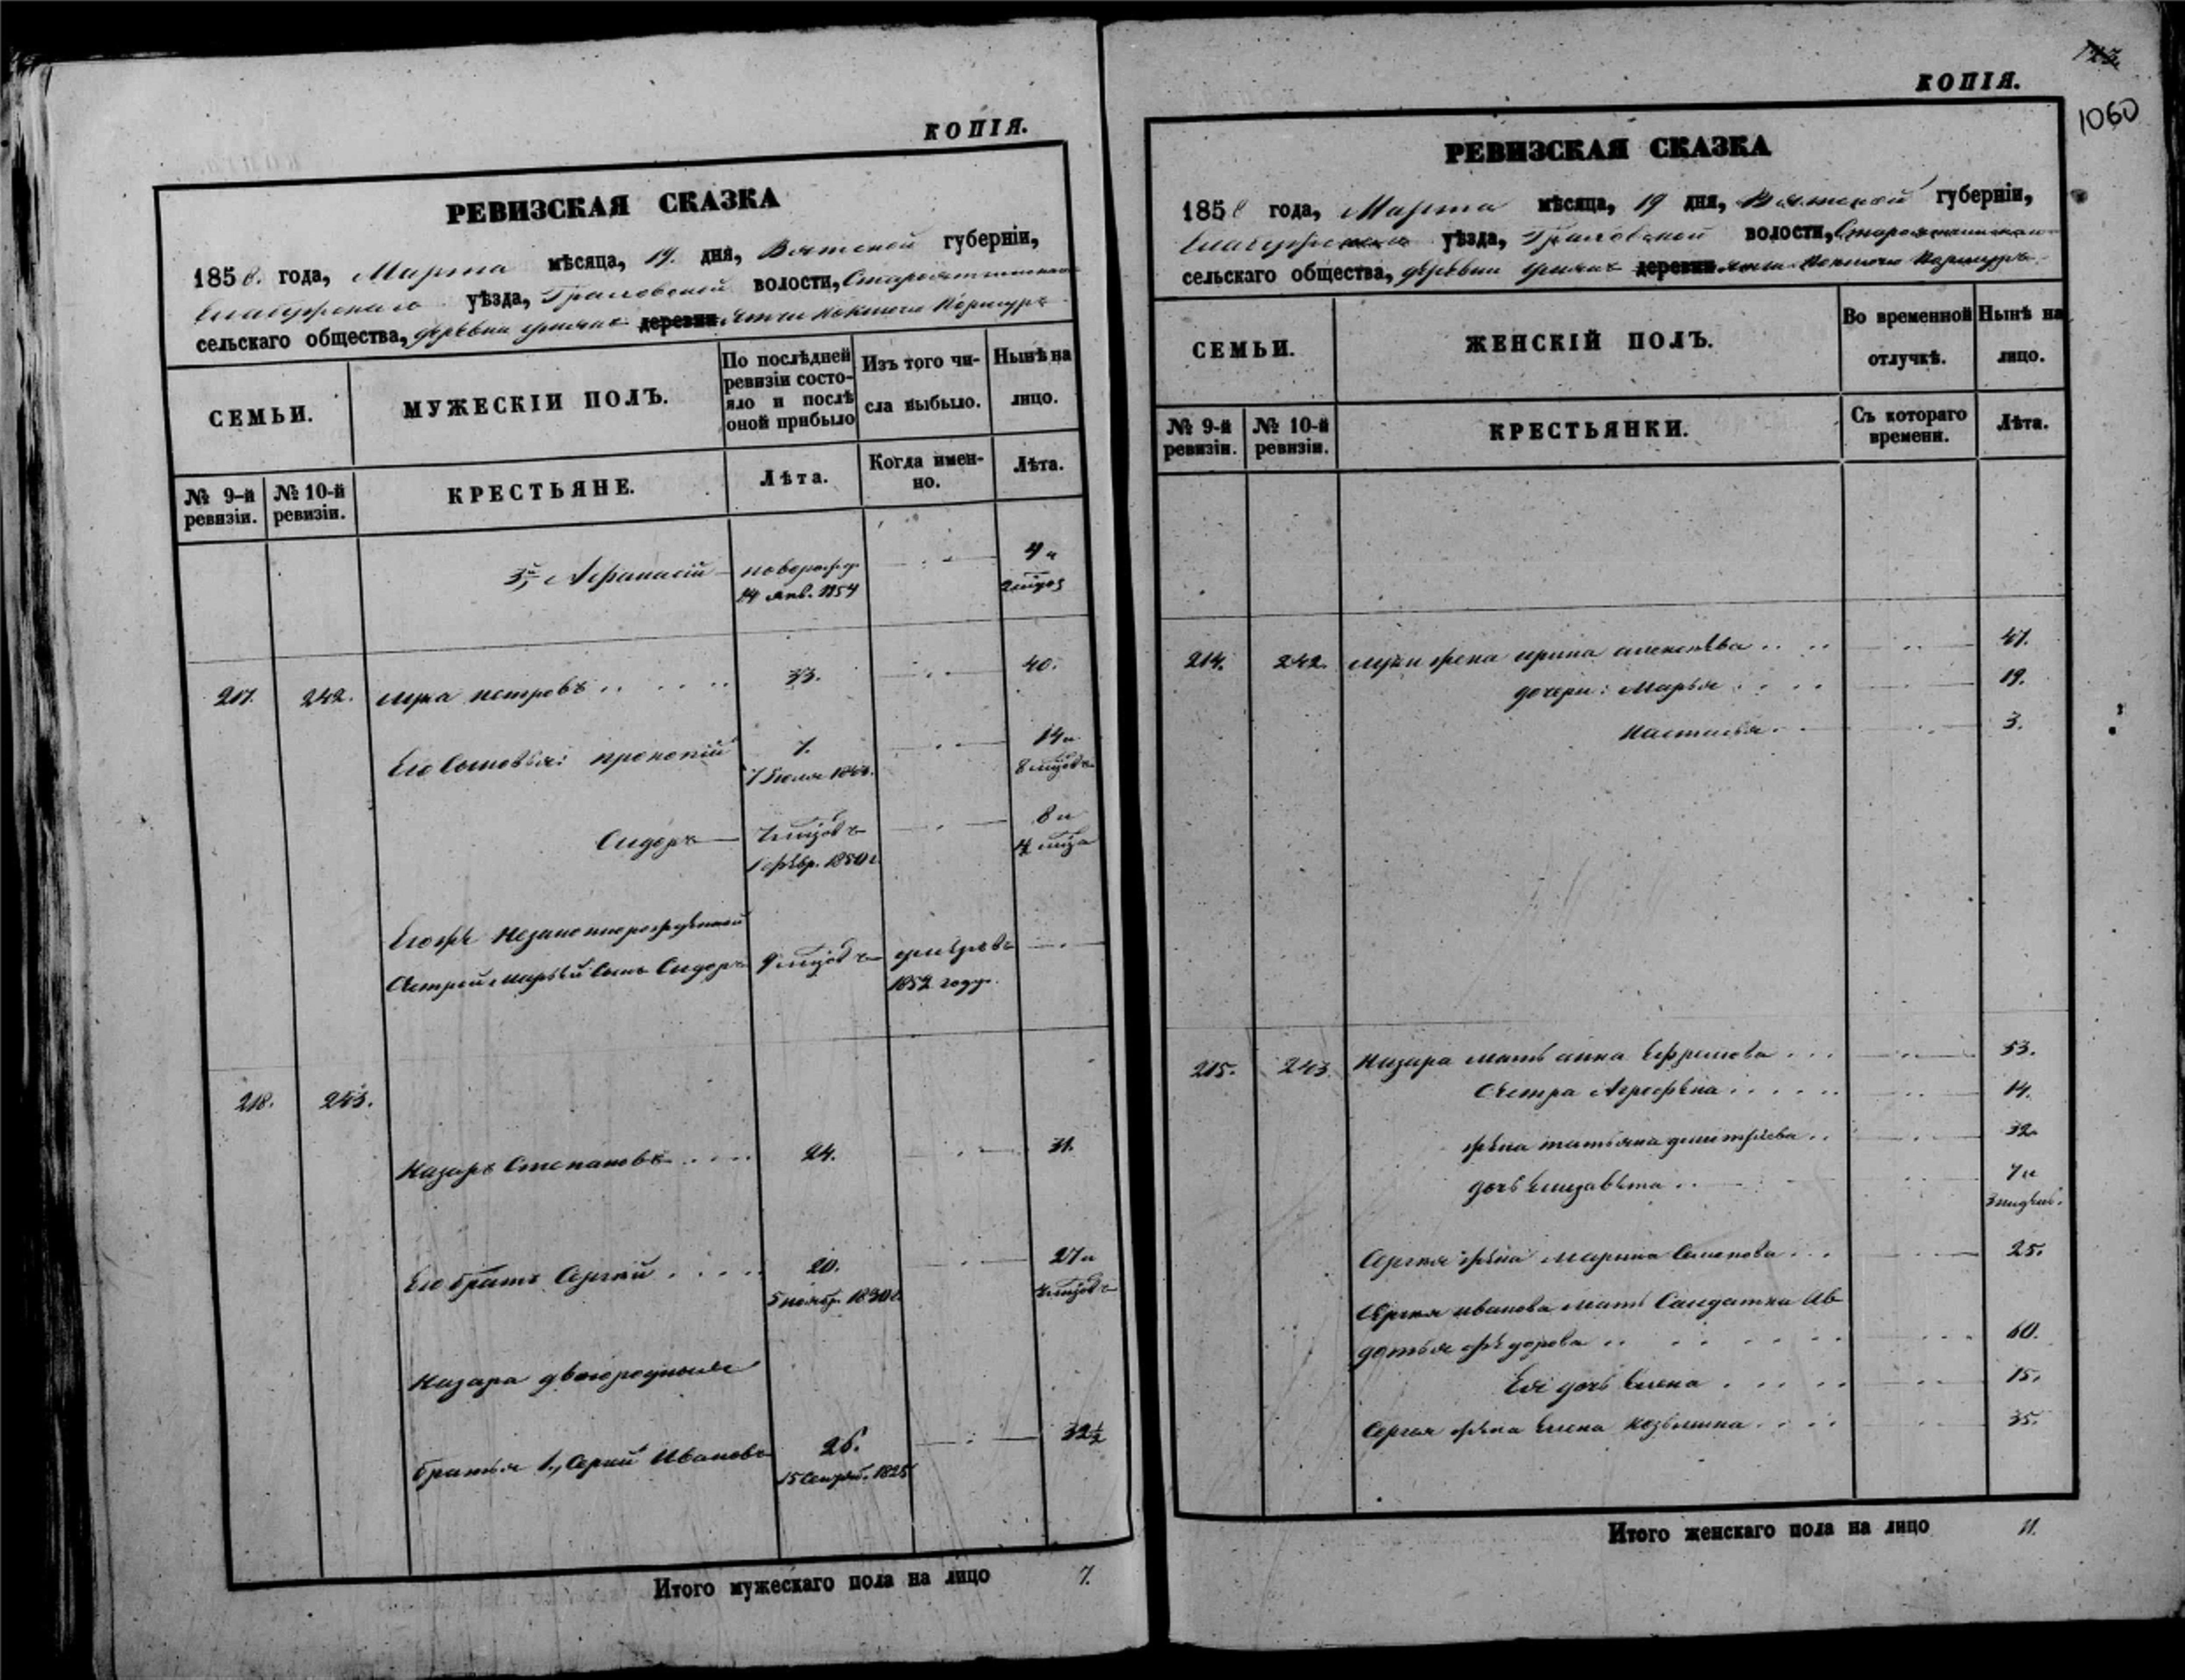 КОПІЯ.
РЕВИЗСКАЯ СКАЗКА
1858. года, Марта мѣсяца, 19. дня, Вятской губерніи,
Елабужскаго уѣзда, Граховской волости,
сельскаго общества, деревни деревни
СЕМЬИ.
МУЖЕСКІЙ ПОЛЪ.
По послѣдней ревизіи состояло и послѣ оной прибыло
Изъ того числа выбыло.
Нынѣ на лицо.
№ 9-й ревизіи.
№ 10-й ревизіи.
КРЕСТЬЯНЕ.
Лѣта.
Когда именно.
Лѣта.
3й Афанасій новорожд. 4 и
14 янв. 1854
217. 242. Лука Петровъ 33. 40.
Его сыновья: Прокопій 7. 14 и
8 мцовъ
Сидоръ 7 мцовъ 8 и
1 февр. 1850 г.
Его же незаконнорожденной
сестры Марьи сынъ Сидоръ 9 мцовъ умеръ въ
1852 году.
218. 243.
Назаръ Степановъ 24. 31.
Его братъ Сергѣй 20. 27 и
5 ноябр. 1830 г. 4 мцовъ
Назара двоюродныя
братья 1., Сергѣй Ивановъ 26. 32½
15 Сентяб. 1825
Итого мужескаго пола на лицо 7.
КОПІЯ.
1060
РЕВИЗСКАЯ СКАЗКА
1858 года, Марта мѣсяца, 19 дня, Вятской губерніи,
Елабужскаго уѣзда, Граховской волости,
сельскаго общества, деревни деревни
СЕМЬИ.
ЖЕНСКІЙ ПОЛЪ.
Во временной отлучкѣ.
Нынѣ на лицо.
№ 9-й ревизіи.
№ 10-й ревизіи.
КРЕСТЬЯНКИ.
Съ котораго времени.
Лѣта.
214. 242. Луки жена Ирина Алексѣева
дочери: Марья 19.
Настасья 3.
215. 243. Назара мать Анна Ефремова 53.
сестра Агрофена 14.
жена Татьяна Дмитріева 32.
дочь Елизавета 7 и
3 недѣль.
Сергѣя жена Марина Семенова 25.
Сергѣя Иванова мать Салдатка Ав-
дотья Федорова 60.
Ея дочь Елена 15.
Сергѣя жена Елена Козьмина 35.
Итого женскаго пола на лицо 11.